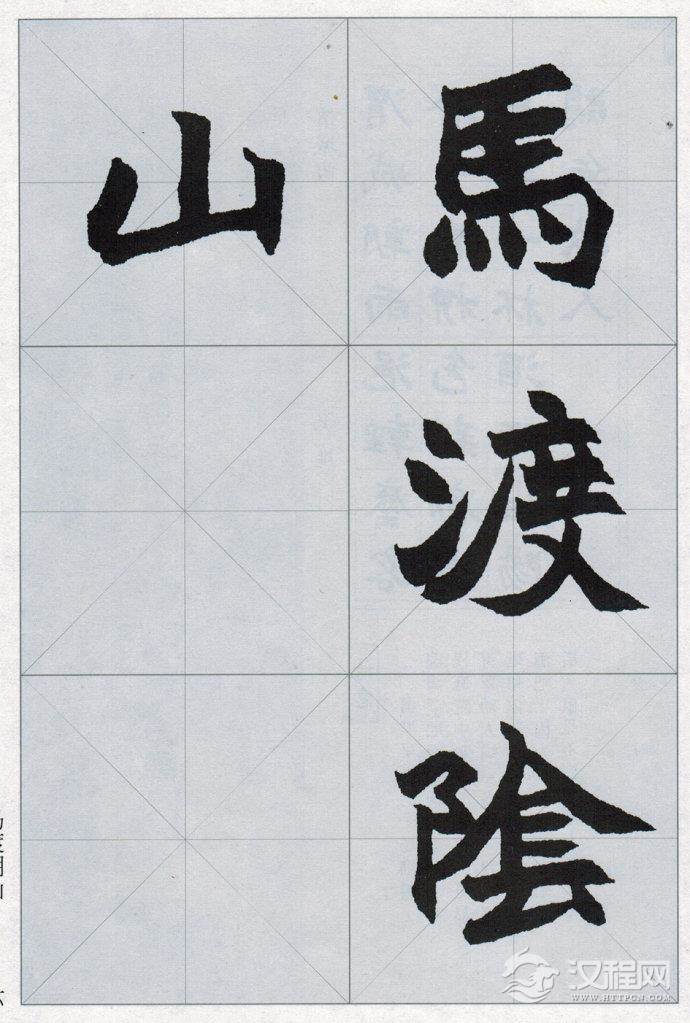 馬渡陰
山
汉程网
WWW.HTTPCN.COM